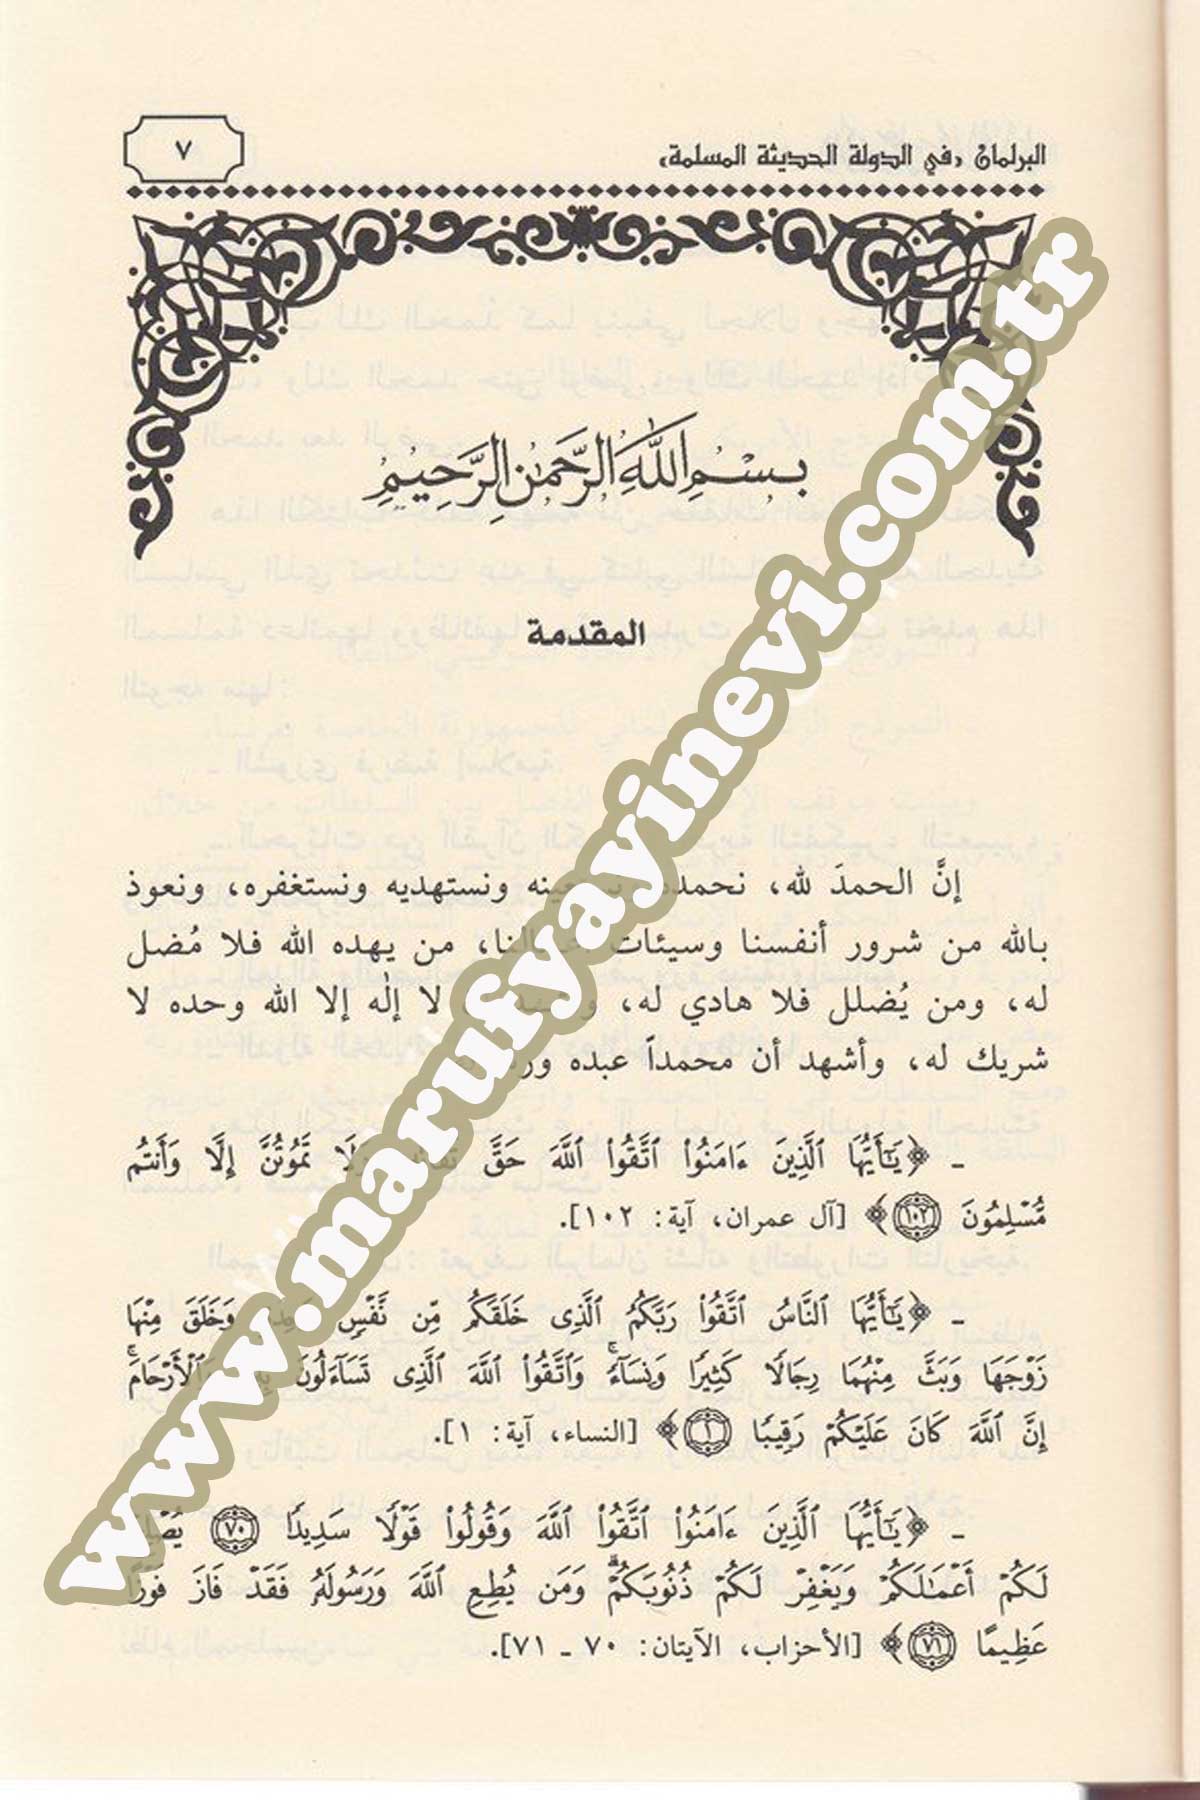 البرلمان «في الدولة الحديثة المسلمة»
٧
بِسْمِ اللَّهِ الرَّحْمَٰنِ الرَّحِيمِ
المقدمة
إنَّ الحمدَ لله، نحمده ونستعينه ونستهديه ونستغفره، ونعوذ
بالله من شرور أنفسنا وسيئات أعمالنا، من يهده الله فلا مُضل
له، ومن يُضلل فلا هادي له، وأشهد أن لا إلٰه إلا الله وحده لا
شريك له، وأشهد أن محمداً عبده ورسوله.
ـ ﴿يَٰٓأَيُّهَا ٱلَّذِينَ ءَامَنُوا۟ ٱتَّقُوا۟ ٱللَّهَ حَقَّ تُقَاتِهِۦ وَلَا تَمُوتُنَّ إِلَّا وَأَنتُم
مُّسْلِمُونَ ١٠٢﴾ [آل عمران، آية: ١٠٢].
ـ ﴿يَٰٓأَيُّهَا ٱلنَّاسُ ٱتَّقُوا۟ رَبَّكُمُ ٱلَّذِى خَلَقَكُم مِّن نَّفْسٍ وَٰحِدَةٍ وَخَلَقَ مِنْهَا
زَوْجَهَا وَبَثَّ مِنْهُمَا رِجَالًا كَثِيرًا وَنِسَآءً ۚ وَٱتَّقُوا۟ ٱللَّهَ ٱلَّذِى تَسَآءَلُونَ بِهِۦ وَٱلْأَرْحَامَ ۚ
إِنَّ ٱللَّهَ كَانَ عَلَيْكُمْ رَقِيبًا ١﴾ [النساء، آية: ١].
ـ ﴿يَٰٓأَيُّهَا ٱلَّذِينَ ءَامَنُوا۟ ٱتَّقُوا۟ ٱللَّهَ وَقُولُوا۟ قَوْلًا سَدِيدًا ٧٠ يُصْلِحْ
لَكُمْ أَعْمَٰلَكُمْ وَيَغْفِرْ لَكُمْ ذُنُوبَكُمْ ۗ وَمَن يُطِعِ ٱللَّهَ وَرَسُولَهُۥ فَقَدْ فَازَ فَوْزًا
عَظِيمًا ٧١﴾ [الأحزاب، الآيتان: ٧٠ ـ ٧١].
www.marufyayinevi.com.tr